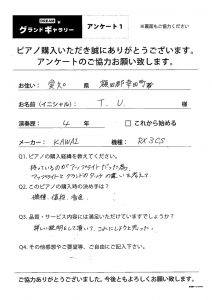 グランドギャラリー アンケート1 ※裏面もご協力ください
ピアノ購入いただき誠にありがとうございます。
アンケートのご協力お願い致します。
お住い: 愛知 県 額田郡幸田町
お名前(イニシャル): T. U.
演奏歴: 4 年 □ これから始める
メーカー: KAWAI 機種: RX3CS
Q1. ピアノの購入経緯を教えてください。
持っているのがアップライトだった為、
アップライトとグランドのタッチの違いを考えて
Q2. このピアノの購入時の決め手は?
機種、値段、音色
Q3. 品質・サービス内容には満足いただけていますでしょうか?
詳しい説明をして頂いて、ここにしようと思った。
Q4. その他感想やご要望等、ご自由にご記入下さい。
ご協力ありがとうございました。今後ともよろしくお願い致します。